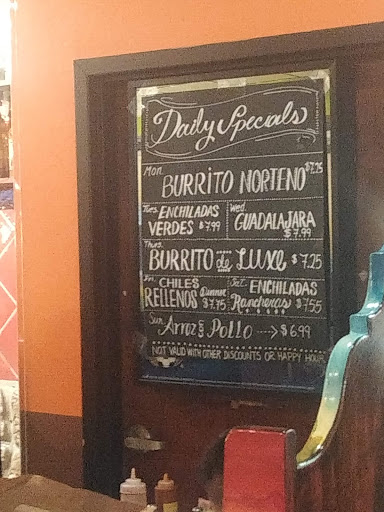 Daily Specials
Mon. BURRITO NORTENO $7.25
Tues. ENCHILADAS VERDES $7.99
Wed. GUADALAJARA $7.99
Thurs. BURRITO de LUXE $7.25
Fri. CHILES RELLENOS Dinner $7.75
Sat. ENCHILADAS Rancheras $7.55
Sun. Arroz con Pollo $6.99
NOT VALID WITH OTHER DISCOUNTS OR HAPPY HOUR